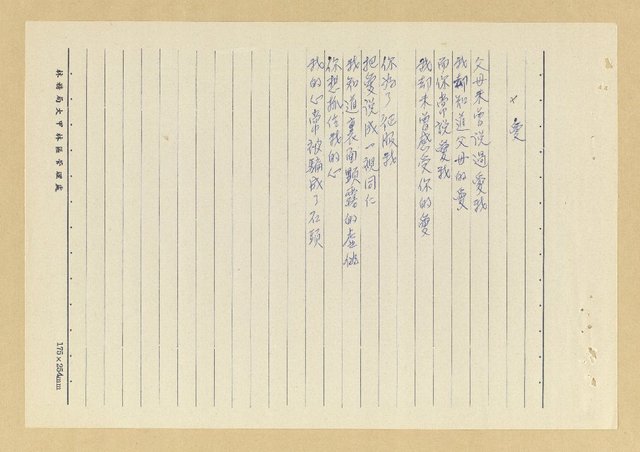 × 愛
父母未曾說過愛我
我却知道父母的愛
而你常說愛我
我却未曾感受你的愛
你為了征服我
把愛說成一視同仁
我知道裏面顯露的虛偽
你想抓住我的心
我的心常被騙成了石頭
林務局大甲林區管理處
175×254mm